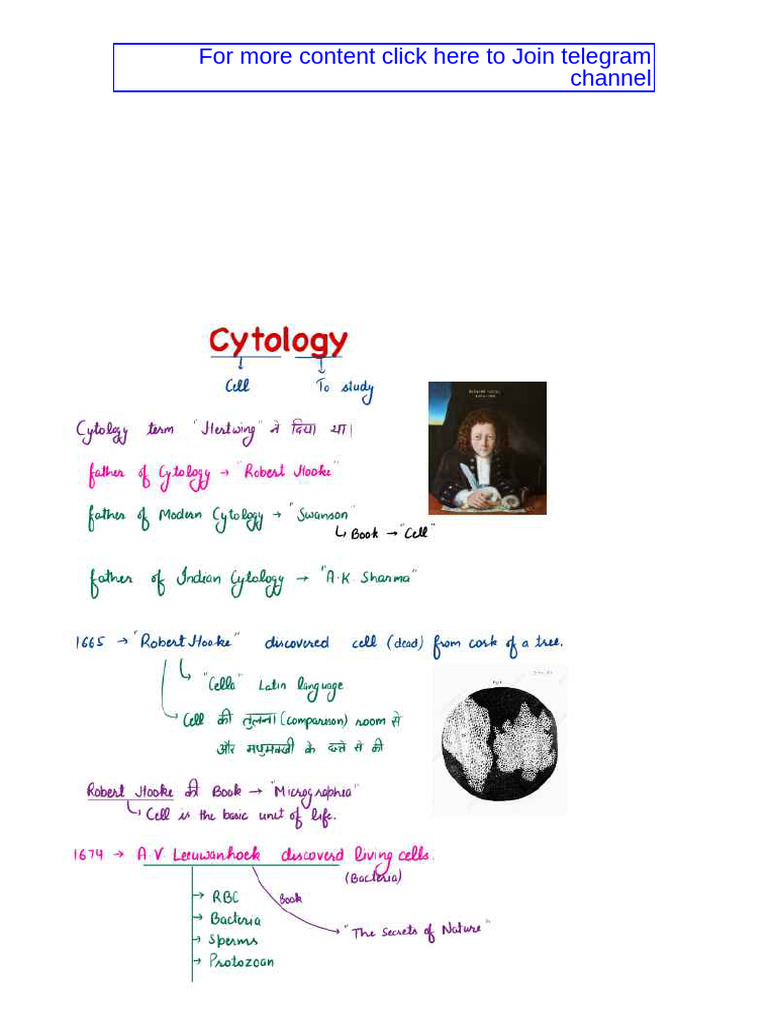 For more content click here to Join telegram
channel
Cytology
Cell To study
Cytology term "Hertwing" ने दिया था।
father of Cytology → "Robert Hooke"
father of Modern Cytology → "Swanson"
↳ Book → "Cell"
father of Indian Cytology → "A.K. Sharma"
1665 → "Robert Hooke" discovered cell (dead) from cork of a tree.
"Cella" Latin language
Cell की तुलना (comparison) room से
और मधुमक्खी के दत्ते से की
Robert Hooke की Book → "Micrographia"
Cell is the basic unit of life.
1674 → A.V. Leeuwanhoek discoverd living cells.
(Bacteria)
→ RBC
Book
→ Bacteria
"The Secrets of Nature"
→ Sperms
→ Protozoan